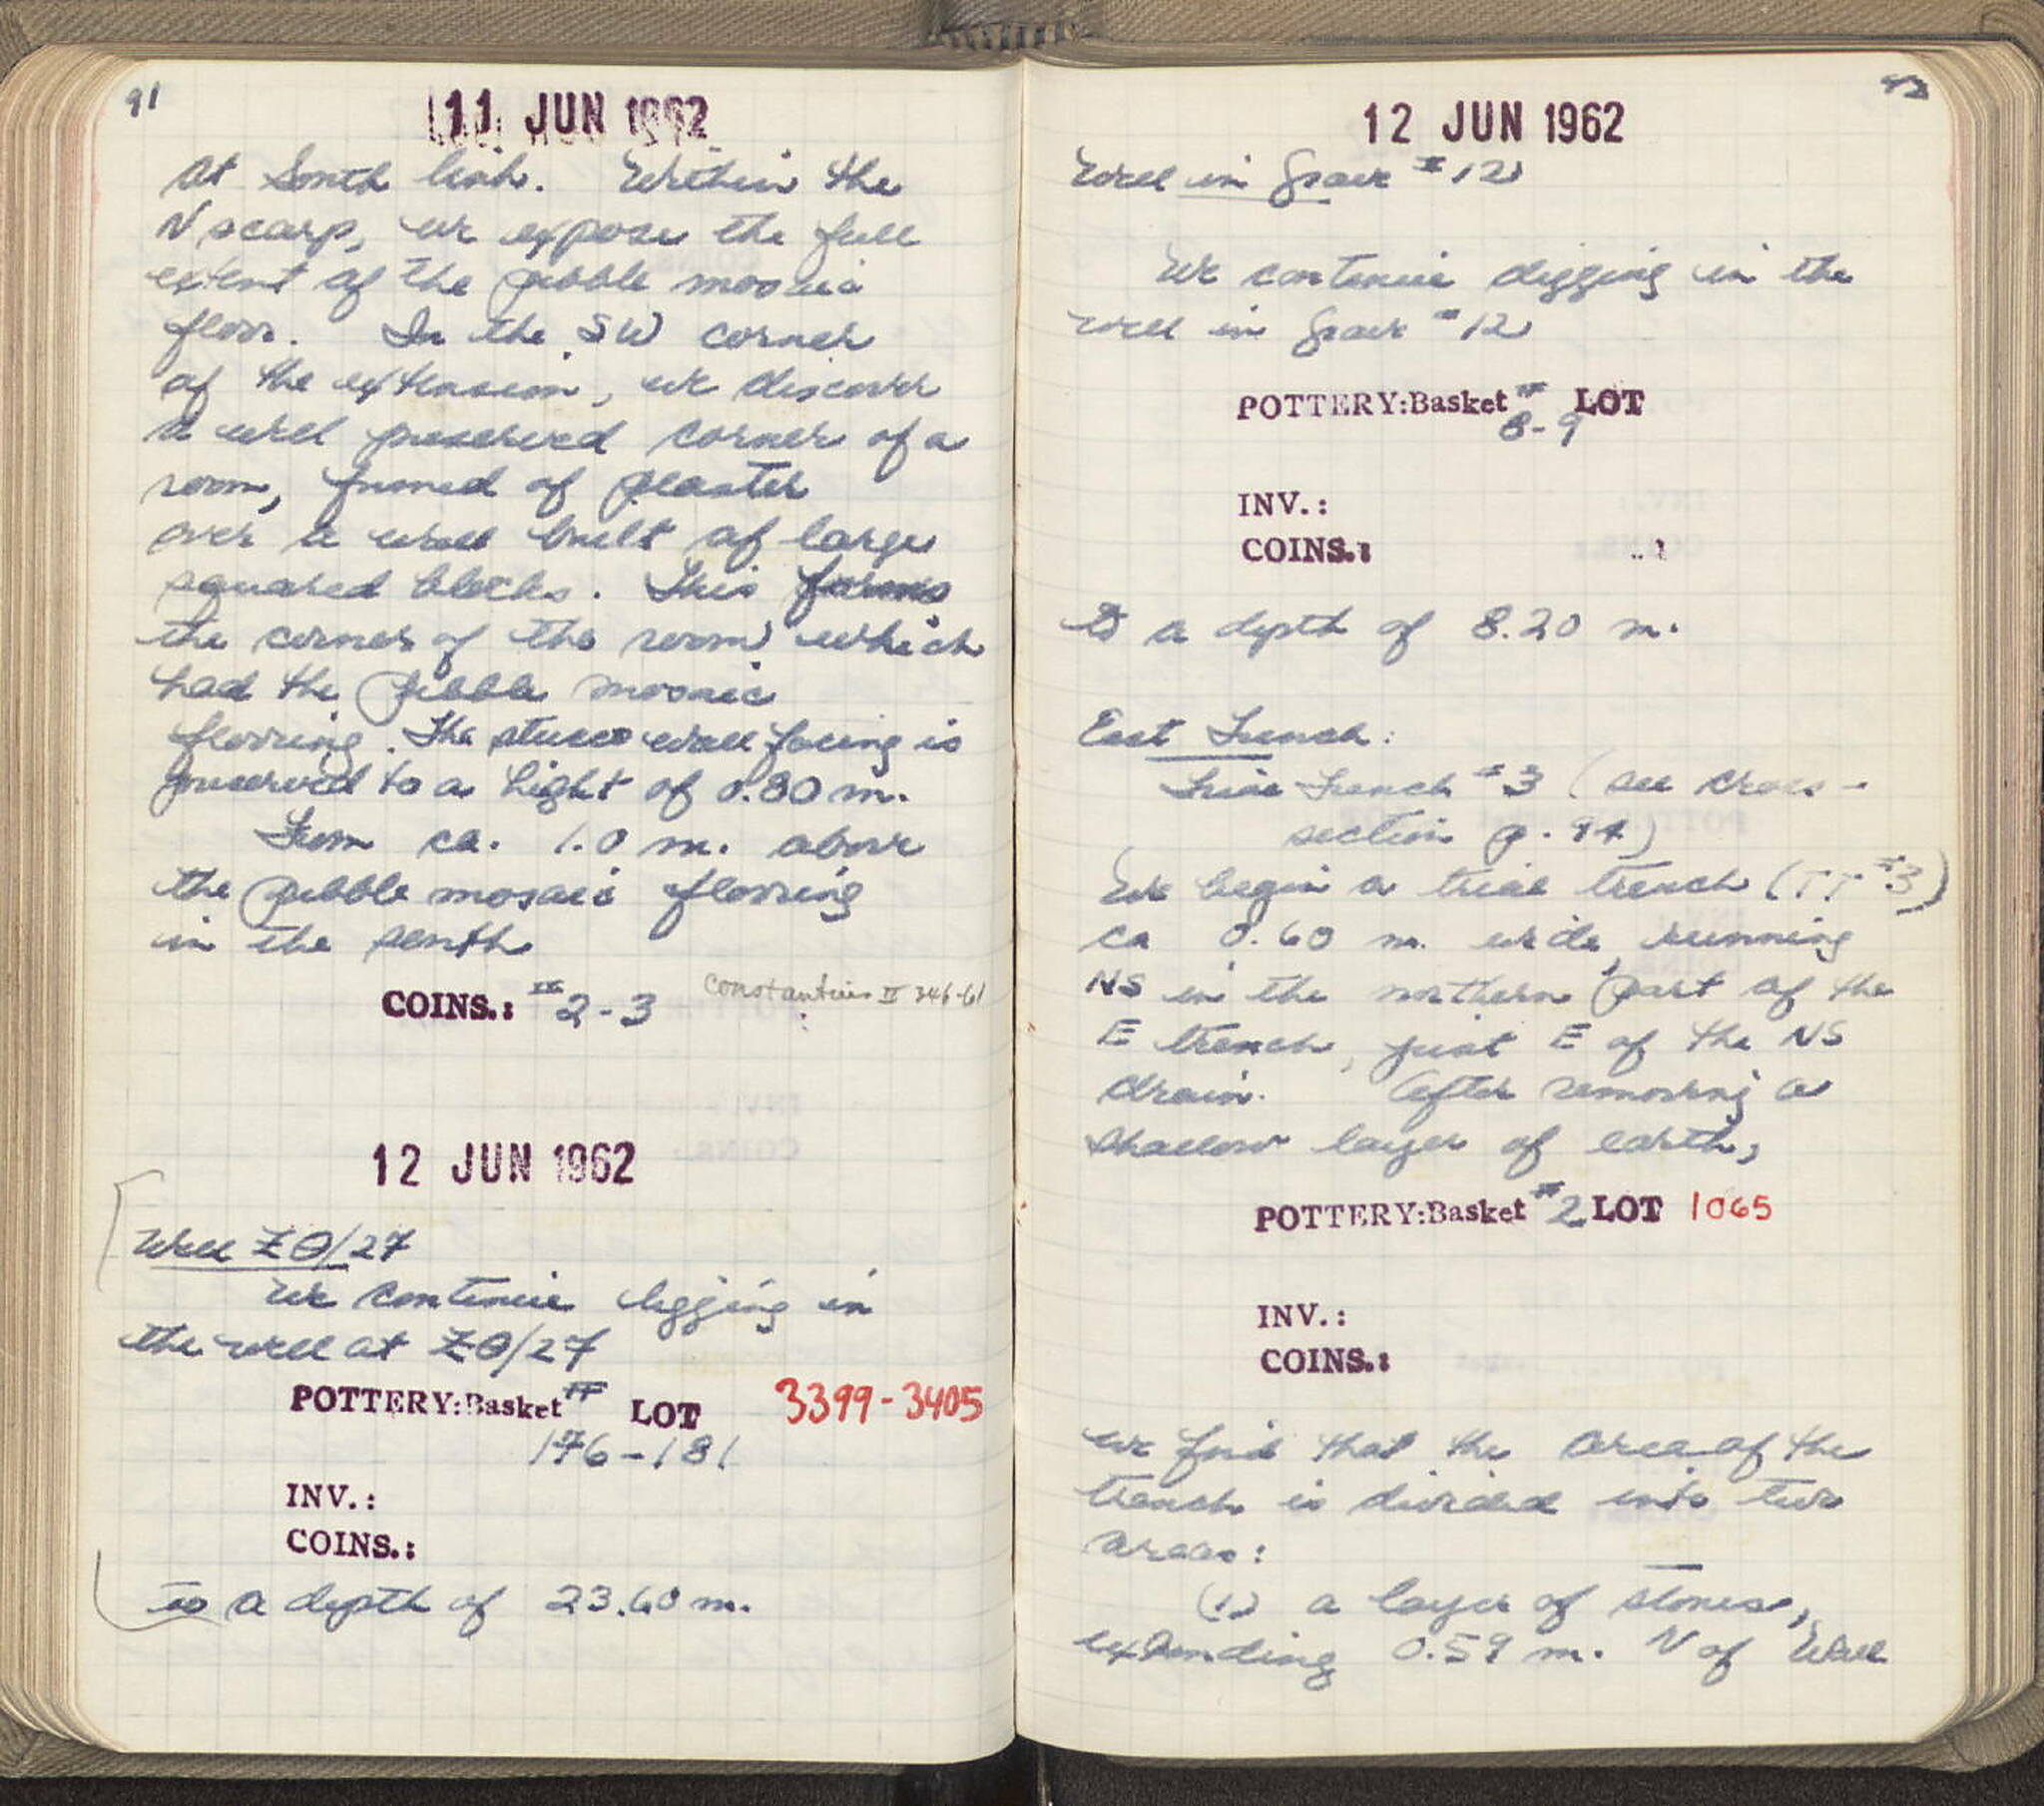 91
11 JUN 1962
at South link. Within the
N scarp, we expose the full
extent of the pebble mosaic
floor. In the SW corner
of the extension, we discover
a well preserved corner of a
room, formed of plaster
over a wall built of large
squared blocks. This forms
the corner of the room which
had the pebble mosaic
flooring. The stucco wall facing is
preserved to a hight of 0.80 m.
From ca. 1.0 m. above
the pebble mosaic flooring
in the south
COINS.: # 2-3 Constantius II 346-61
12 JUN 1962
Well ZΘ/27
We continue digging in
the well at ZΘ/27
POTTERY:Basket # LOT 3399-3405
176-181
INV.:
COINS.:
to a depth of 23.60 m.
12 JUN 1962
Well in Space #12
We continue digging in the
well in Space #12
POTTERY:Basket # LOT
8-9
INV.:
COINS.:
to a depth of 8.20 m.
East Trench:
Trial Trench #3 (see cross-
section p. 94)
We begin a trial trench (TT #3)
ca 0.60 m. wide, running
NS in the northern part of the
E trench, just E of the NS
drain. After removing a
shallow layer of earth,
POTTERY:Basket # 2 LOT 1065
INV.:
COINS.:
we find that the area of the
trench is divided into two
areas:
(1) a layer of stones,
extending 0.59 m. N of Wall